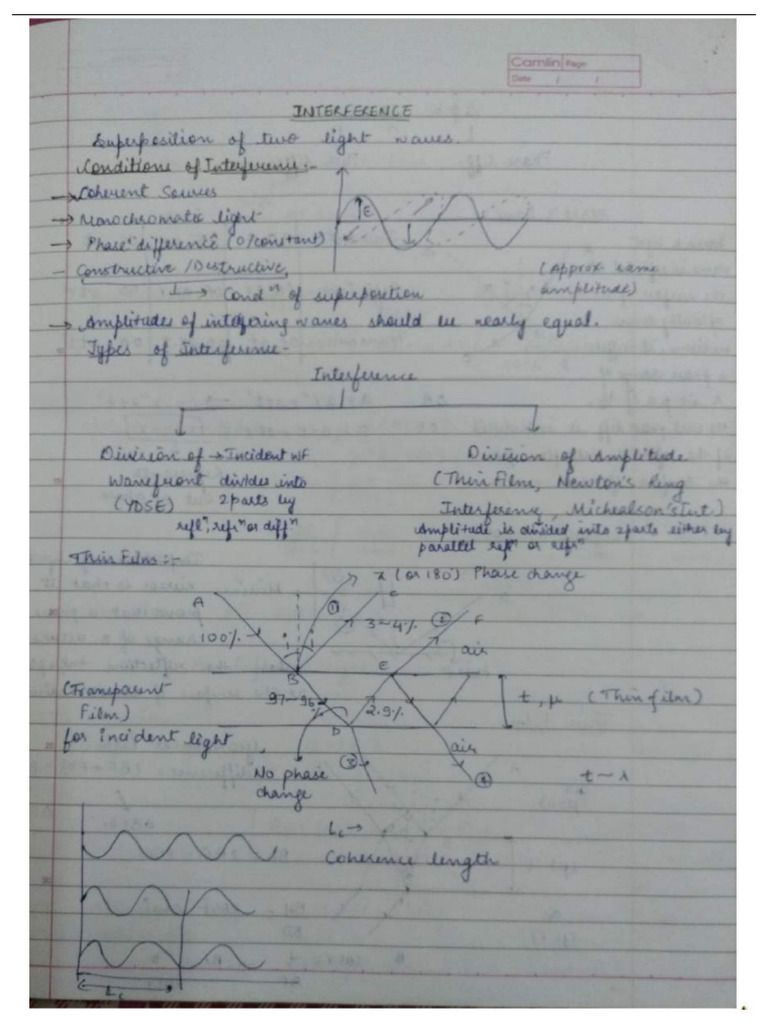 Camlin Page
Date / /
INTERFERENCE
Superposition of two light waves.
Conditions of Interference:-
→ Coherent Sources
→ Monochromatic light
→ Phase difference (0/constant)
E
- Constructive/Destructive,
(Approx same
amplitude)
↳ Condⁿ of superposition
→ Amplitudes of interfering waves should be nearly equal.
Types of Interference-
Interference
Division of → Incident WF
Wavefront divides into
(YDSE) 2 parts by
reflⁿ, refrⁿ or diffⁿ
Division of Amplitude
(Thin Film, Newton's Ring
Interferenc, Michealson's Int.)
Amplitude is divided into 2 parts either by
parallel reflⁿ or refrⁿ
Thin Films:-
π (or 180) Phase change
A
①
C
100%
i i
3-4%
②
F
air
B
E
(Transparent
Film)
97-96
%
2.9%
t, μ (Thin film)
for incident light
D
③
air
④
No phase
change
t~λ
Lc →
Coherence length
Lc